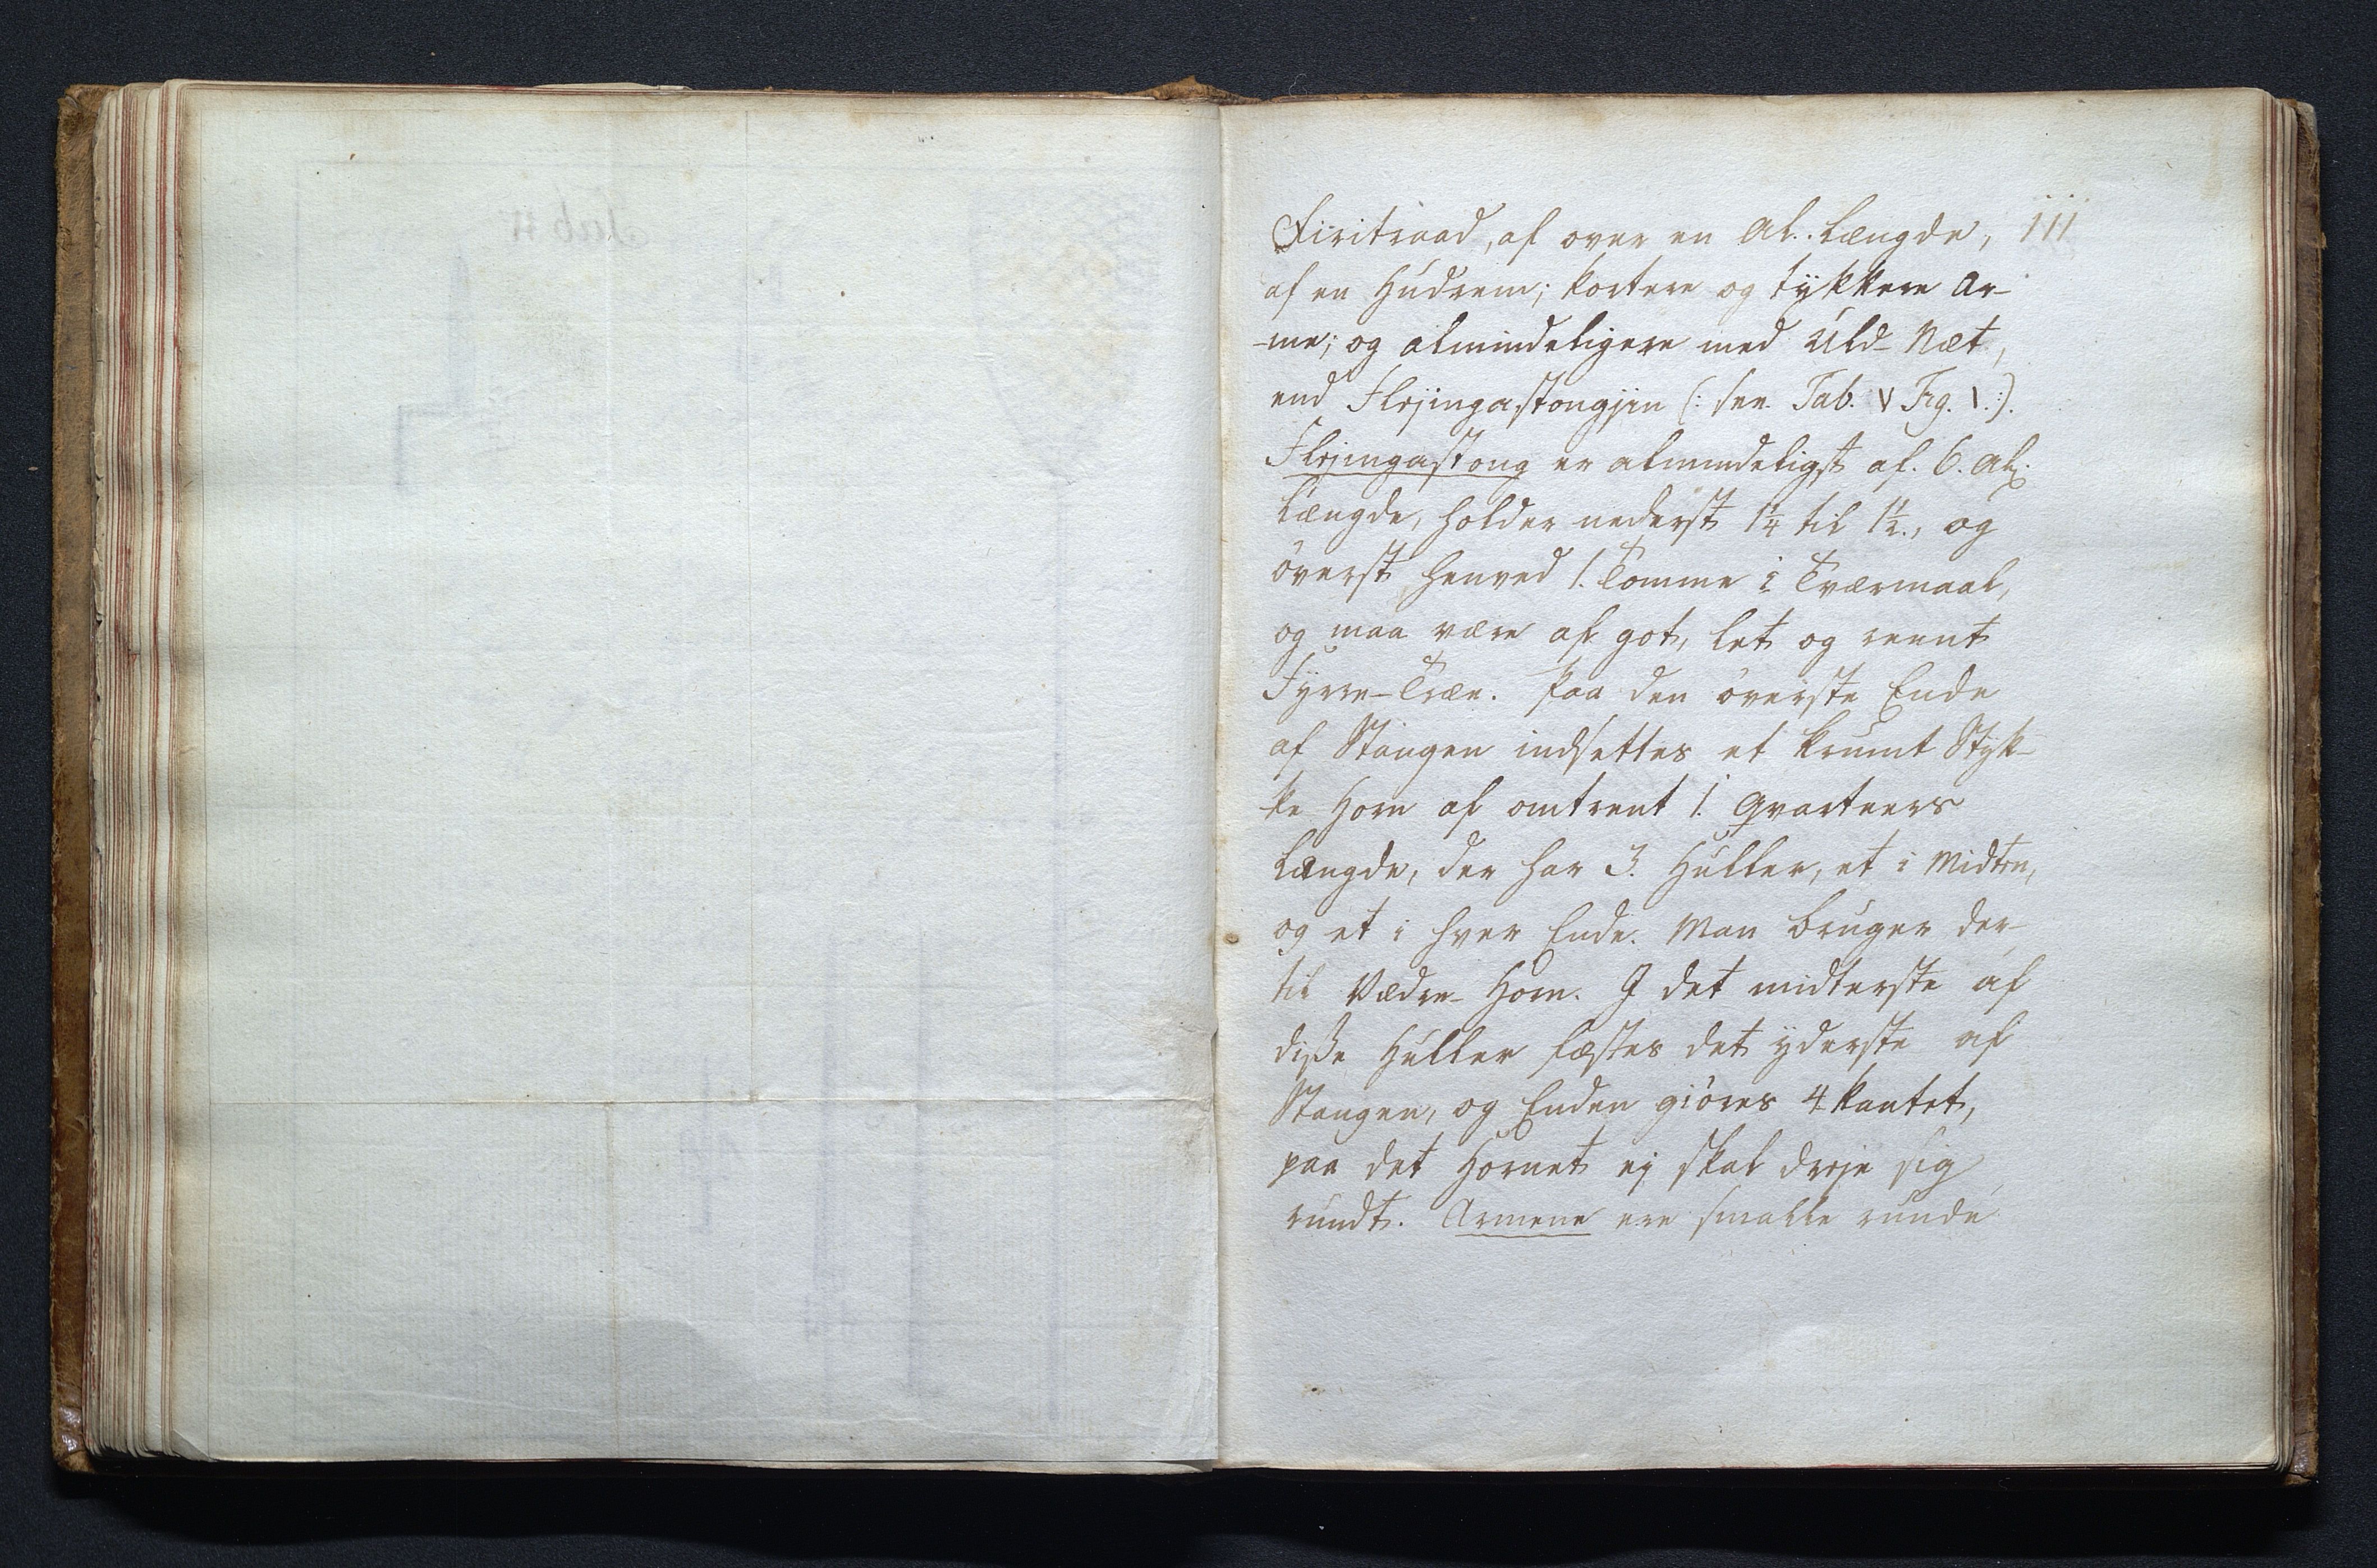 Tab II
Firitraad, af over en Al. Længde, 111
af en Hudrem; kortere og tykkere Ar-
-me; og almindeligere med Uld-Næt,
end Flejingastongjen (: see Tab. V Fig. 1.:).
Flejingastong er almindeligst af 6. Al.
Længde, holder nederst 1¼ til 1½., og
överst henved 1. Tomme i Tværmaal,
og maa være af got, let og reent
Fyrre-Træe. Paa den överste Ende
af Stangen indsettes et krumt Styk-
ke Horn af omtrent 1. Qvarteers
Længde, der har 3. Huller, et i Midten,
og et i hver Ende. Man bruger der-
til Vædre-Horn. I det midterste af
disse Huller fæstes det yderste af
Stangen, og Enden giöres 4kantet,
paa det Hornet ej skal dreje sig
rundt. Armene ere smalle runde